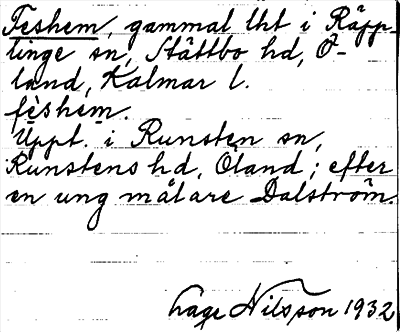 Feshem, gammal lht i Räpp-
linge sn, Slättbo hd, Ö-
land, Kalmar l.
fèshem.
Uppt. i Runsten sn,
Runstens hd, Öland; efter
en ung målare Dalström.
Lage Nilsson 1932